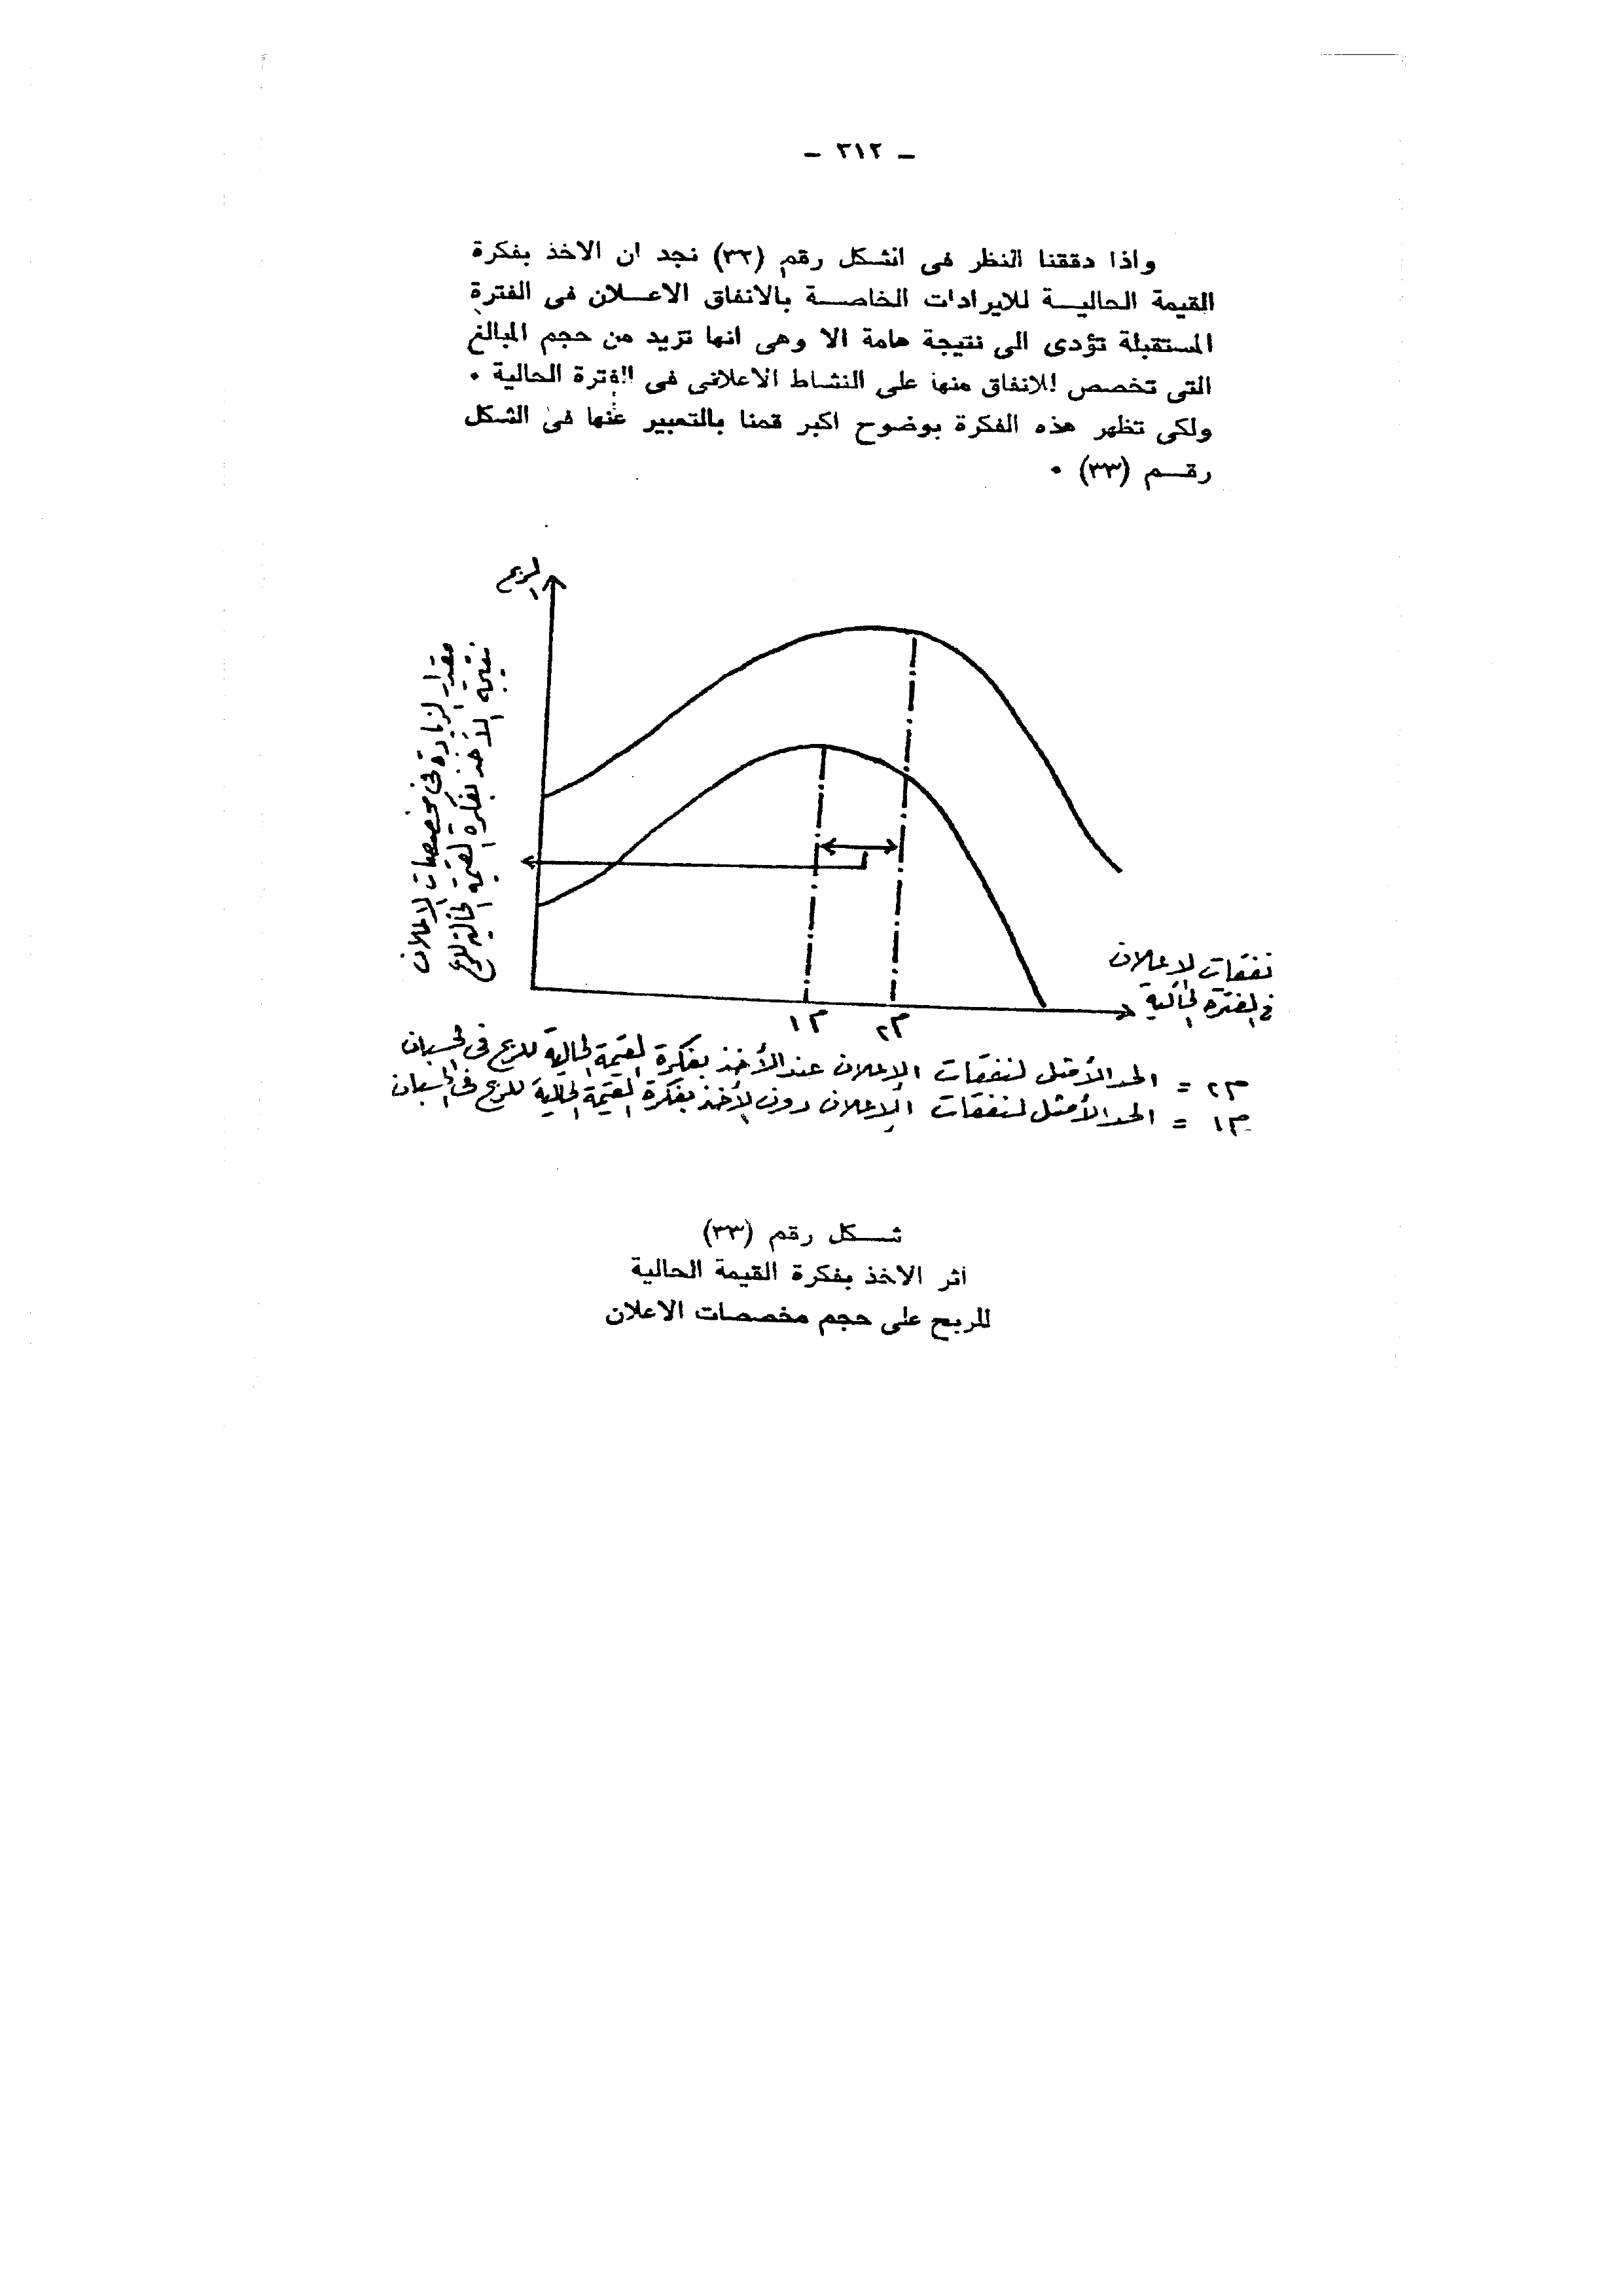 - ٣١٢ -
واذا دققنا النظر فى الشكل رقم (٣٢) نجد ان الاخذ بفكرة
القيمة الحالية للايرادات الخاصة بالانفاق الاعلان فى الفترة
المستقبلة تؤدى الى نتيجة هامة الا وهى انها تزيد من حجم المبالغ
التى تخصص للانفاق منها على النشاط الاعلانى فى الفترة الحالية .
ولكى تظهر هذه الفكرة بوضوح اكبر قمنا بالتعبير عنها فى الشكل
رقم (٣٣) .
الربح
مقدار الزيادة فى مخصصات الاعلان
نتيجة الأخذ بفكرة القيمة الحالية للربح
نفقات الاعلان
فى الفترة الحالية
م١
م٢
م٢ = الحد الأمثل لنفقات الإعلان عند الأخذ بفكرة القيمة الحالية للربح فى الحسبان
م١ = الحد الأمثل لنفقات الإعلان دون الأخذ بفكرة القيمة الحالية للربح فى الحسبان
شكل رقم (٣٣)
أثر الاخذ بفكرة القيمة الحالية
للربح على حجم مخصصات الاعلان